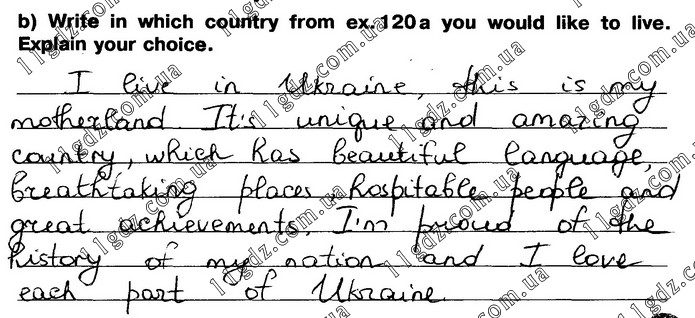 b) Write in which country from ex. 120 a you would like to live.
Explain your choice.
I live in Ukraine, this is my
motherland It's unique and amazing
country, which has beautiful language,
breathtaking places, hospitable people and
great achievements. I'm proud of the
history of my nation and I love
each part of Ukraine.
11gdz.com.ua